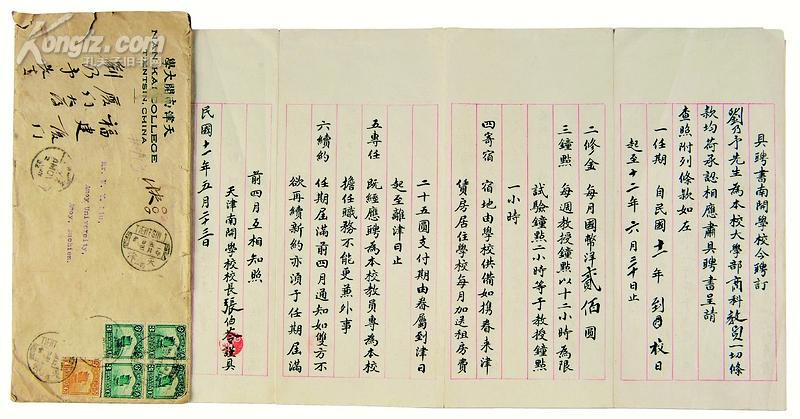 具聘書南開學校今聘訂
劉乃予先生為本校大學部商科教員一切條
款均荷承認相應肅具聘書呈請
查照附列條款如左
一任期 自民國十一年 到校日
起至十二年六月三十日止
二修金 每月國幣洋貳佰圓
三鐘點 每週教授鐘點以十二小時為限
試驗鐘點二小時等于教授鐘點
一小時
四寄宿 宿地由學校供備如携眷來津
賃房居住學校每月加送租房費
二十五圓支付期由眷屬到津日
起至離津日止
五專任 既經應聘為本校教員專為本校
擔任職務不能更兼外事
六續約 任期屆滿前四月通知如雙方不
欲再續新約亦須于任期屆滿
前四月互相知照
天津南開學校校長張伯苓謹具
民國十一年五月二十三日
Kongfz.com
孔夫子旧书网
天津南開大學
NANKAI COLLEGE
TIENTSIN, CHINA
福建廈門
廈門大學
劉乃予
Amoy University,
Amoy, Fukien.